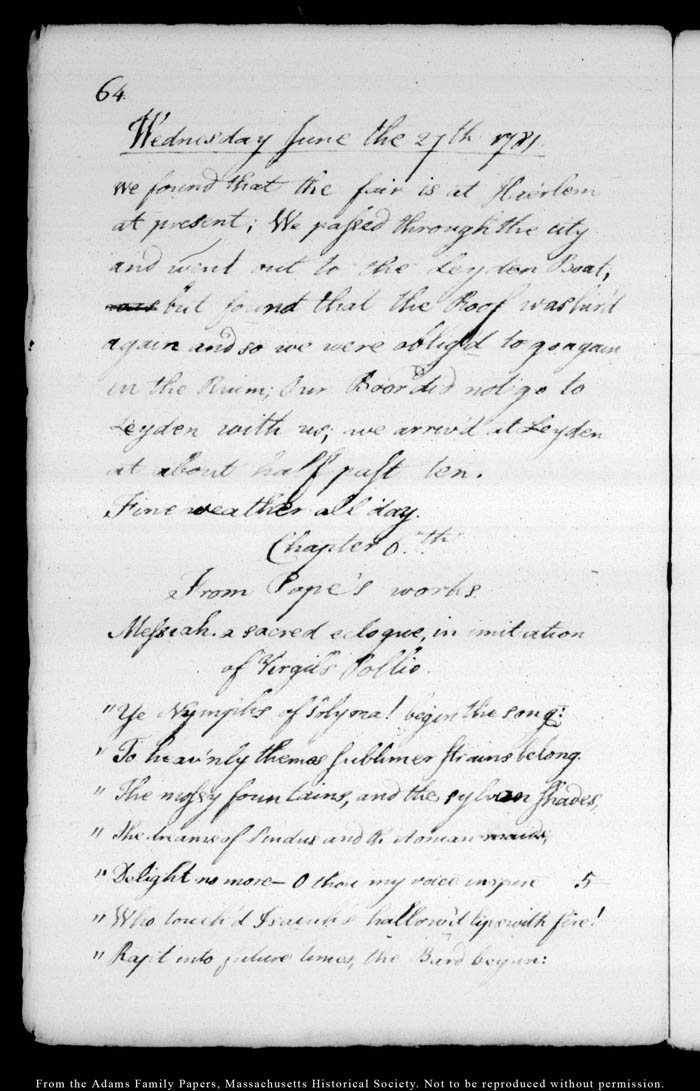 64.
Wednesday June the 27th. 1781.
we found that the fair is at Haerlem
at present; We passed through the city
and went out to the Leyden Boat,
but found that the Roof was hir'd
again and so we were oblig'd to go again
in the Ruim; Our Boor did not go to
Leyden with us; we arriv'd at Leyden
at about half past ten.
Fine weather all day.
Chapter 6.th
From Pope's works.
Messiah. a sacred eclogue, in imitation
of Virgil's Pollio.
"Ye Nymphs of Solyma! begin the song:
" To heav'nly themes sublimer strains belong.
" The mossy fountains, and the sylvan shades,
" The dreams of Pindus and th' Aonian maids,
" Delight no more— O thou my voice inspire 5
" Who touch'd Isaiah's hallow'd lips with fire!
" Rapt into future times, the Bard begun:
From the Adams Family Papers, Massachusetts Historical Society. Not to be reproduced without permission.